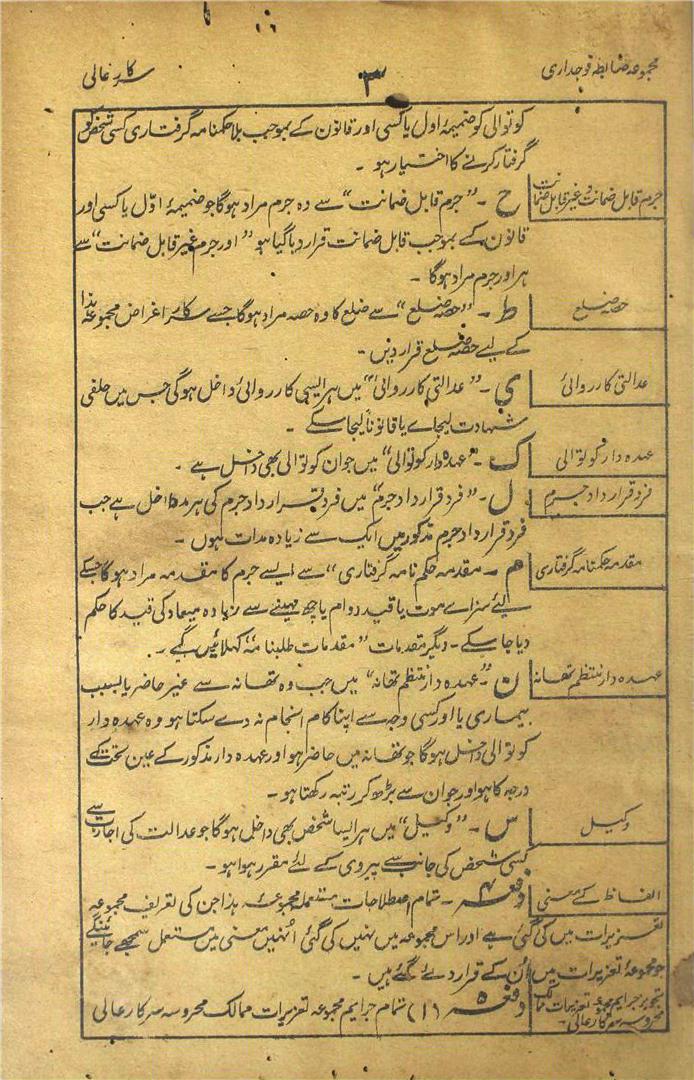 مجموعہ ضابطہ فوجداری
۳
سرکار عالی
کوتوالی کو ضمیمۂ اول یا کسی اور قانون کے بموجب بلا حکمنامہ گرفتاری کسی شخص کو
گرفتار کرنے کا اختیار ہو ۔
جرم قابل ضمانت و غیر قابل ضمانت
ح ۔ ”جرم قابل ضمانت“ سے وہ جرم مراد ہوگا جو ضمیمۂ اوّل یا کسی اور
قانون کے بموجب قابل ضمانت قرار دیا گیا ہو ”اور جرم غیر قابل ضمانت“ سے
ہر اور جرم مراد ہوگا ۔
حصہ ضلع
ط ۔ ”حصہ ضلع“ سے ضلع کا وہ حصہ مراد ہوگا جسے سرکار اغراض مجموعہ ہذا
کے لیے حصہ ضلع قرار دیں ۔
عدالتی کارروائی
ی ۔ ”عدالتی کارروائی“ میں ہر ایسی کارروائی داخل ہوگی جس میں حلفی
شہادت لیجاے یا قانوناً لیجا سکے ۔
عہدہ دار کوتوالی
ک ۔ ”عہدہ دار کوتوالی“ میں جوان کوتوالی بھی داخل ہے ۔
فرد قرار داد جرم
ل ۔ ”فرد قرار داد جرم“ میں فرد قرار داد جرم کی ہر مد داخل ہے جب
فرد قرار داد جرم مذکور میں ایک سے زیادہ مدات ہوں ۔
مقدمہ حکمنامہ گرفتاری
م ۔ مقدمہ حکم نامہ گرفتاری“ سے ایسے جرم کا مقدمہ مراد ہوگا جسکے
لئے سزاے موت یا قید دوام یا چھ مہینے سے زیادہ میعاد کی قید کا حکم
دیا جا سکے ۔ دیگر مقدمات ”مقدمات طلبنامہ“ کہلائیں گے ۔
عہدہ دار منتظم تھانہ
ن ۔ ”عہدہ دار منتظم تھانہ“ میں جب وہ تھانہ سے غیر حاضر یا بسبب
بیماری یا اور کسی وجہ سے اپنا کام انجام نہ دے سکتا ہو وہ عہدہ دار
کوتوالی داخل ہوگا جو تھانہ میں حاضر ہو اور عہدہ دار مذکور کے عین تحت کے
درجہ کا ہو اور جوان سے بڑھ کر رتبہ رکھتا ہو ۔
وکیل
س ۔ ”وکیل“ میں ہر ایسا شخص بھی داخل ہوگا جو عدالت کی اجازت سے
کسی شخص کی جانب سے پیروی کے لئے مقرر ہوا ہو ۔
الفاظ کے معنی
دفعہ ۴ ۔ تمام اصطلاحات مستعملہ مجموعۂ ہذا جن کی تعریف مجموعہ
تعزیرات میں کی گئی ہے اور اس مجموعہ میں نہیں کی گئی اُنہیں معنی میں مستعمل سمجھے جائینگے
جو مجموعۂ تعزیرات میں اُن کے قرار دئے گئے ہیں ۔
تجویز جرایم مجموعہ تعزیرات ممالک
محروسہ سرکار عالی ۔
دفعہ ۵ (۱) تمام جرایم مجموعہ تعزیرات ممالک محروسہ سرکار عالی